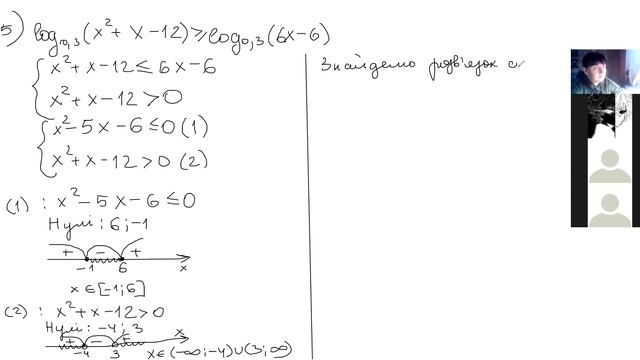 5) log₀,₃(x²+x-12)≥log₀,₃(6x-6)
{ x²+x-12≤6x-6
x²+x-12>0
{ x²-5x-6≤0 (1)
x²+x-12>0 (2)
(1) : x²-5x-6≤0
Нулі: 6; -1
+ - +
-1 6 x
x∈[-1;6]
(2) : x²+x-12>0
Нулі: -4; 3
+ - + x
-4 3 x∈(-∞;-4)∪(3;∞)
Знайдемо розв'язок с